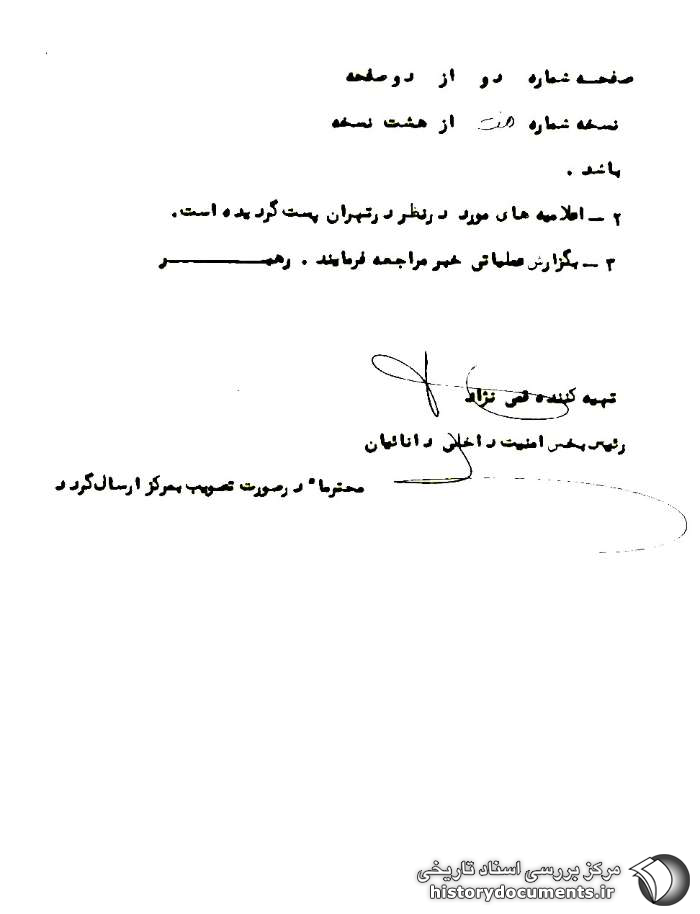 صفحه شماره دو از دو صفحه
نسخه شماره هفت از هشت نسخه
باشد .
۲ – اعلامیه های مورد درنظر درتهران پست گردیده است.
۳ – بگزارش عملیاتی خبر مراجعه فرمایند . رهبر
تهیه کننده قمی نژاد
رئیس بخش امنیت داخلی دانائیان
محترماً درصورت تصویب بمرکز ارسال گردد
مرکز بررسی اسناد تاریخی
historydocuments.ir